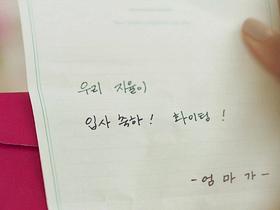 우리 지율이
입사 축하! 화이팅!
- 엄 마 가 -